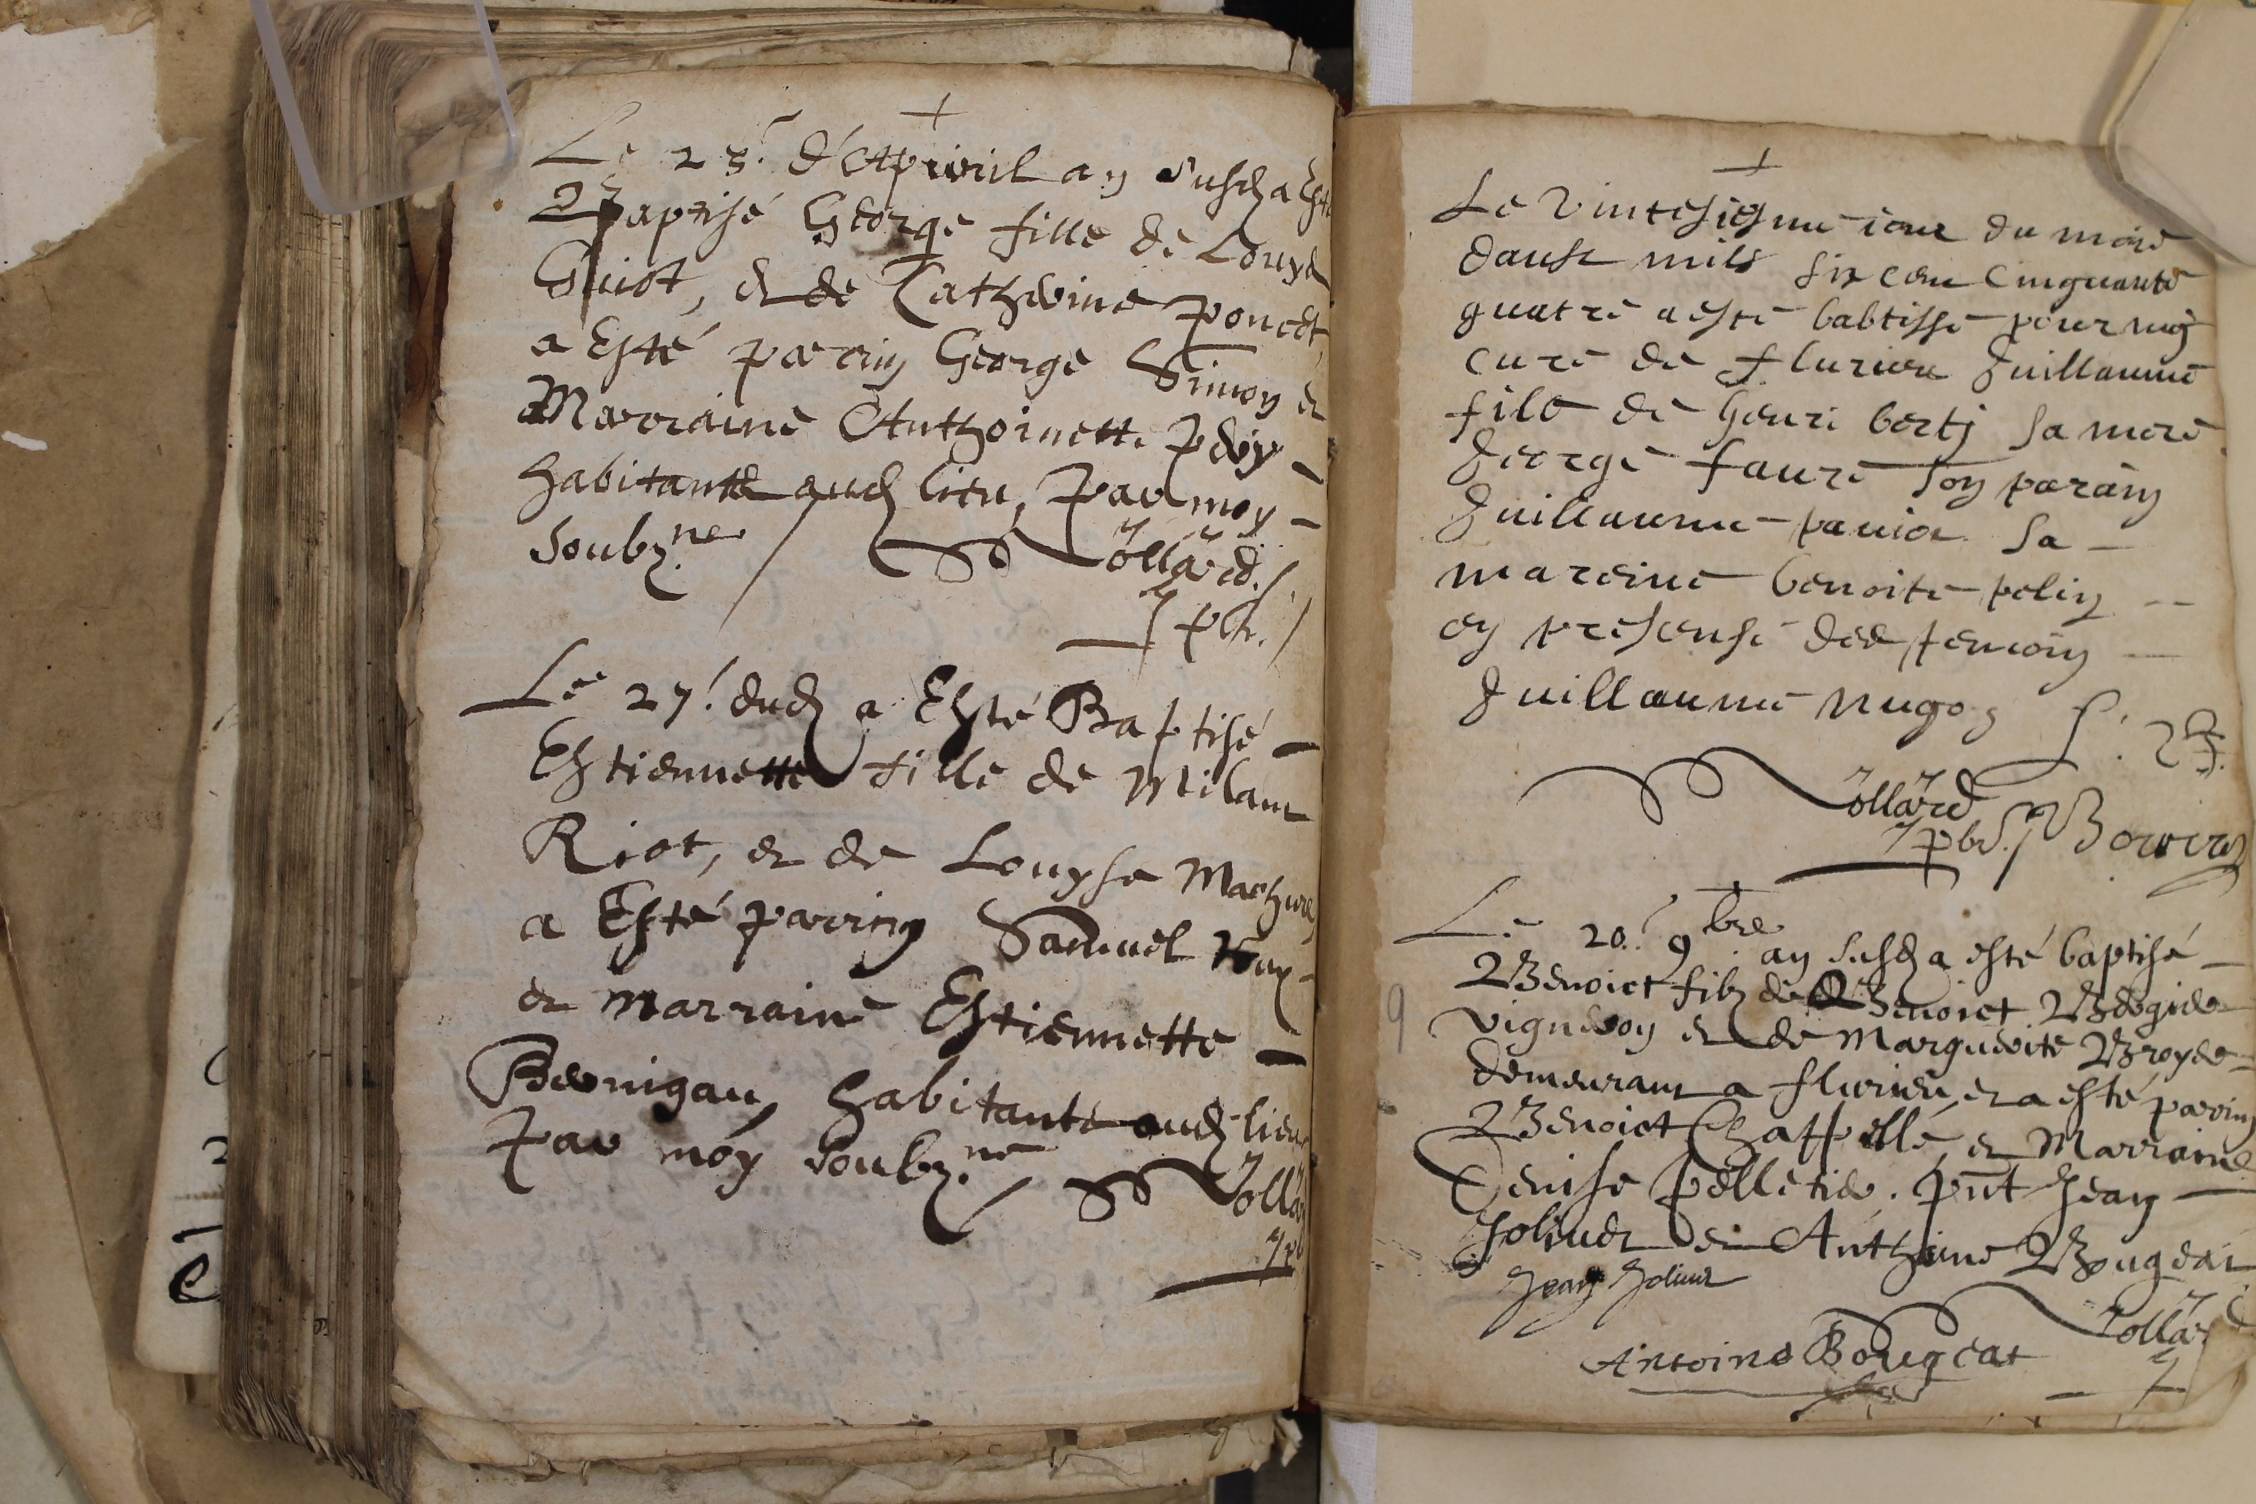 +
Le 23.e d'Apvril an susd a esté
Baptisé George fille de Louys
Guiot, et de Catherine Poncet,
a Esté parrin George Simon et
Marraine Anthoinette Pevy -
habitants aud lieu, Par moy -
soubz.ne / Jollard.
pbr.
Le 27.e dud a Esté Baptisé -
Estiennette fille de Milam
Riot, et de Louyse Mathure
a Esté parring Samuel
et marraine Estiennette -
Bernigau, habitants aud lieu
Par moy soubz.ne Jolla
+
Le Vintesiesme iour du mois
daust mils six cent Cinquante
quatre a esté babtisse pour mij
cure de flurieu Guillaume
fils de henri berti sa mere
George faure son parain
Guillaume paviot sa -
mareine benoite pelin --
en presense des temoin -
Guillaume nugoz S. B.
Jollard
pbr.
Le 20.e 9.bre an susd a esté baptisé -
Benoict filz de Benoict Bergier
vigneron et de Marguerite Broyer -
demeurant a flurieu, et a esté parrin
Benoict Chappellé, et Marraine
Denise Pelletier. pnt Jean -
Jolivet et Anthoine Bougeat
Jean Jolivet
Jollar
Antoine Bougeat